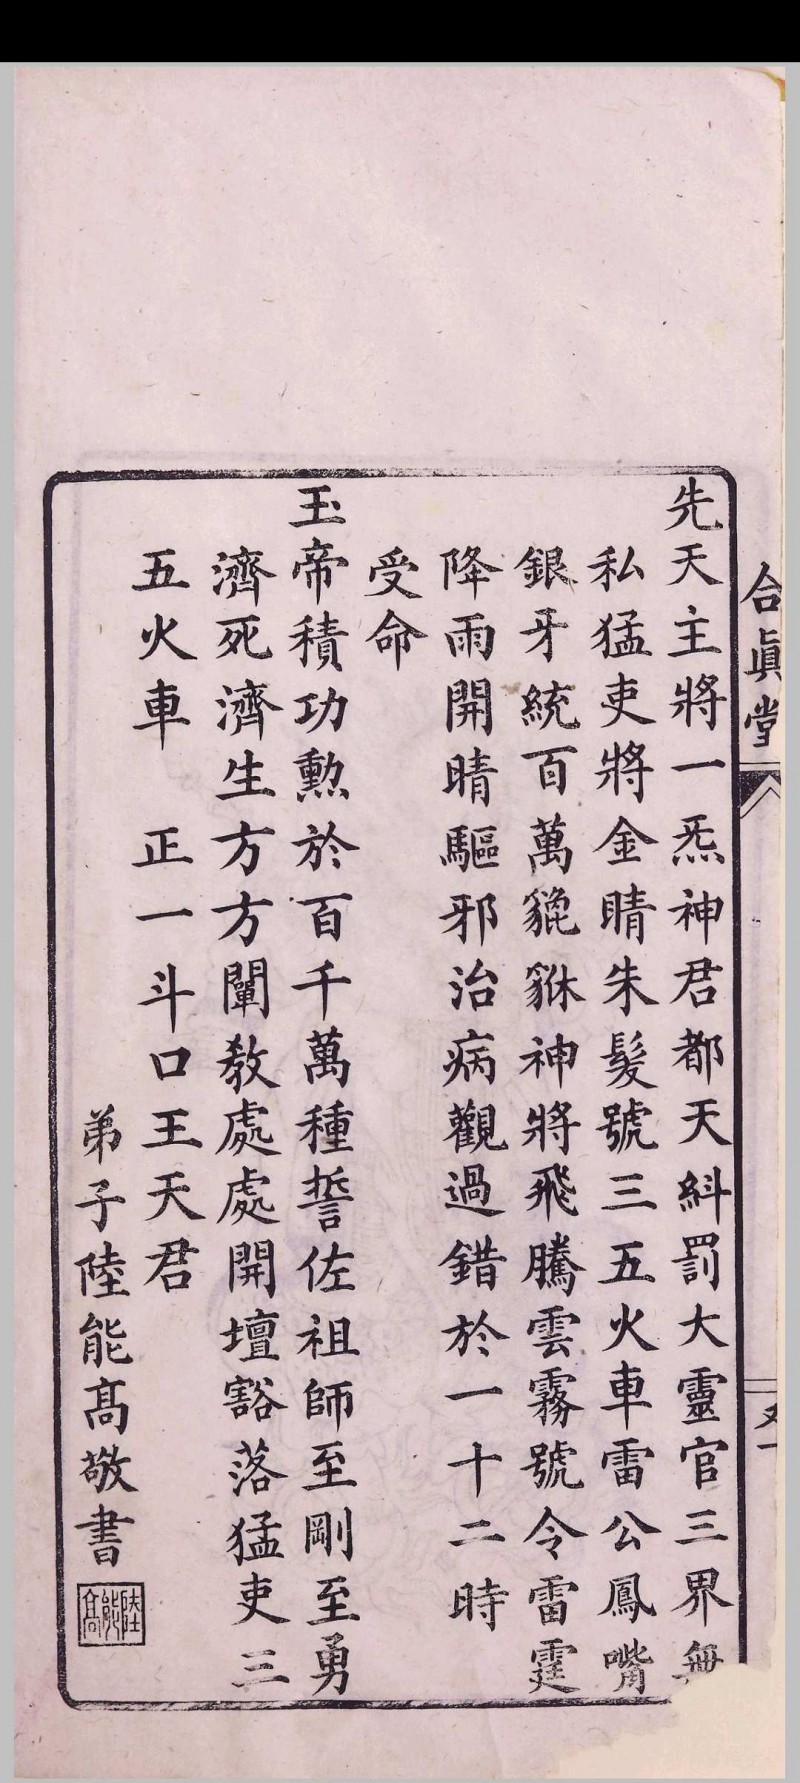 合眞堂
先天主將一炁神君都天糾罰大靈官三界無
私猛吏將金睛朱髮號三五火車雷公鳳嘴
銀牙統百萬貔貅神將飛騰雲霧號令雷霆
降雨開晴驅邪治病觀過錯於一十二時
受命
玉帝積功勲於百千萬種誓佐祖師至剛至勇
濟死濟生方方闡教處處開壇豁落猛吏三
五火車　正一斗口王天君
弟子陸能高敬書
陸能高